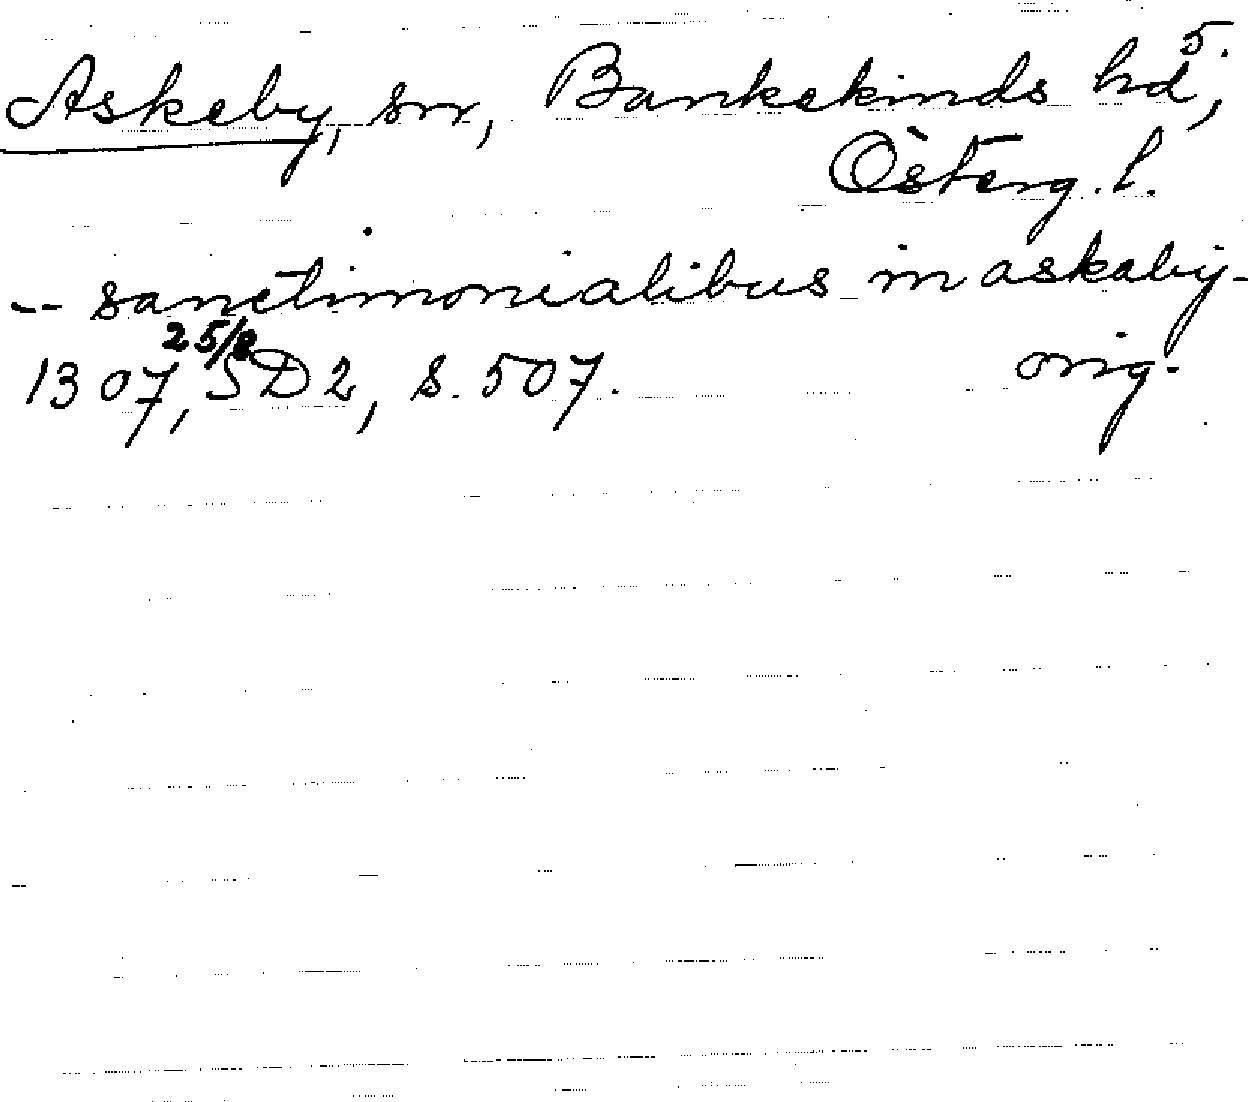 5.
Askeby, sn, Bankekinds hd,
Österg. l.
-- sanctimonialibus in askaby -
1307 25/8, SD 2, s. 507. orig.